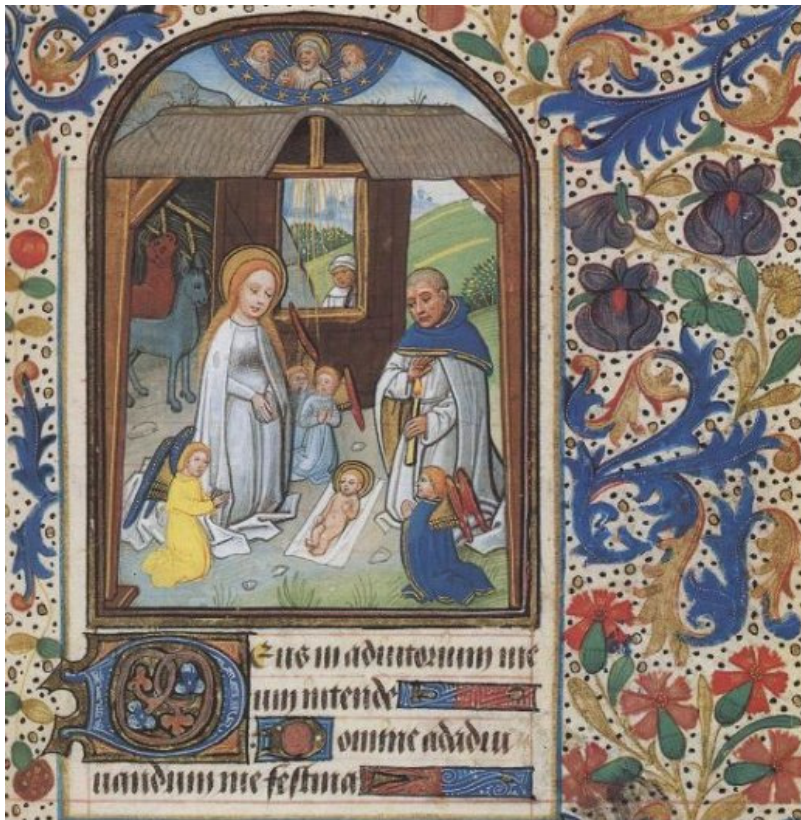 Deus in adiutorium me
um intende
Domine ad adiu
uandum me festina